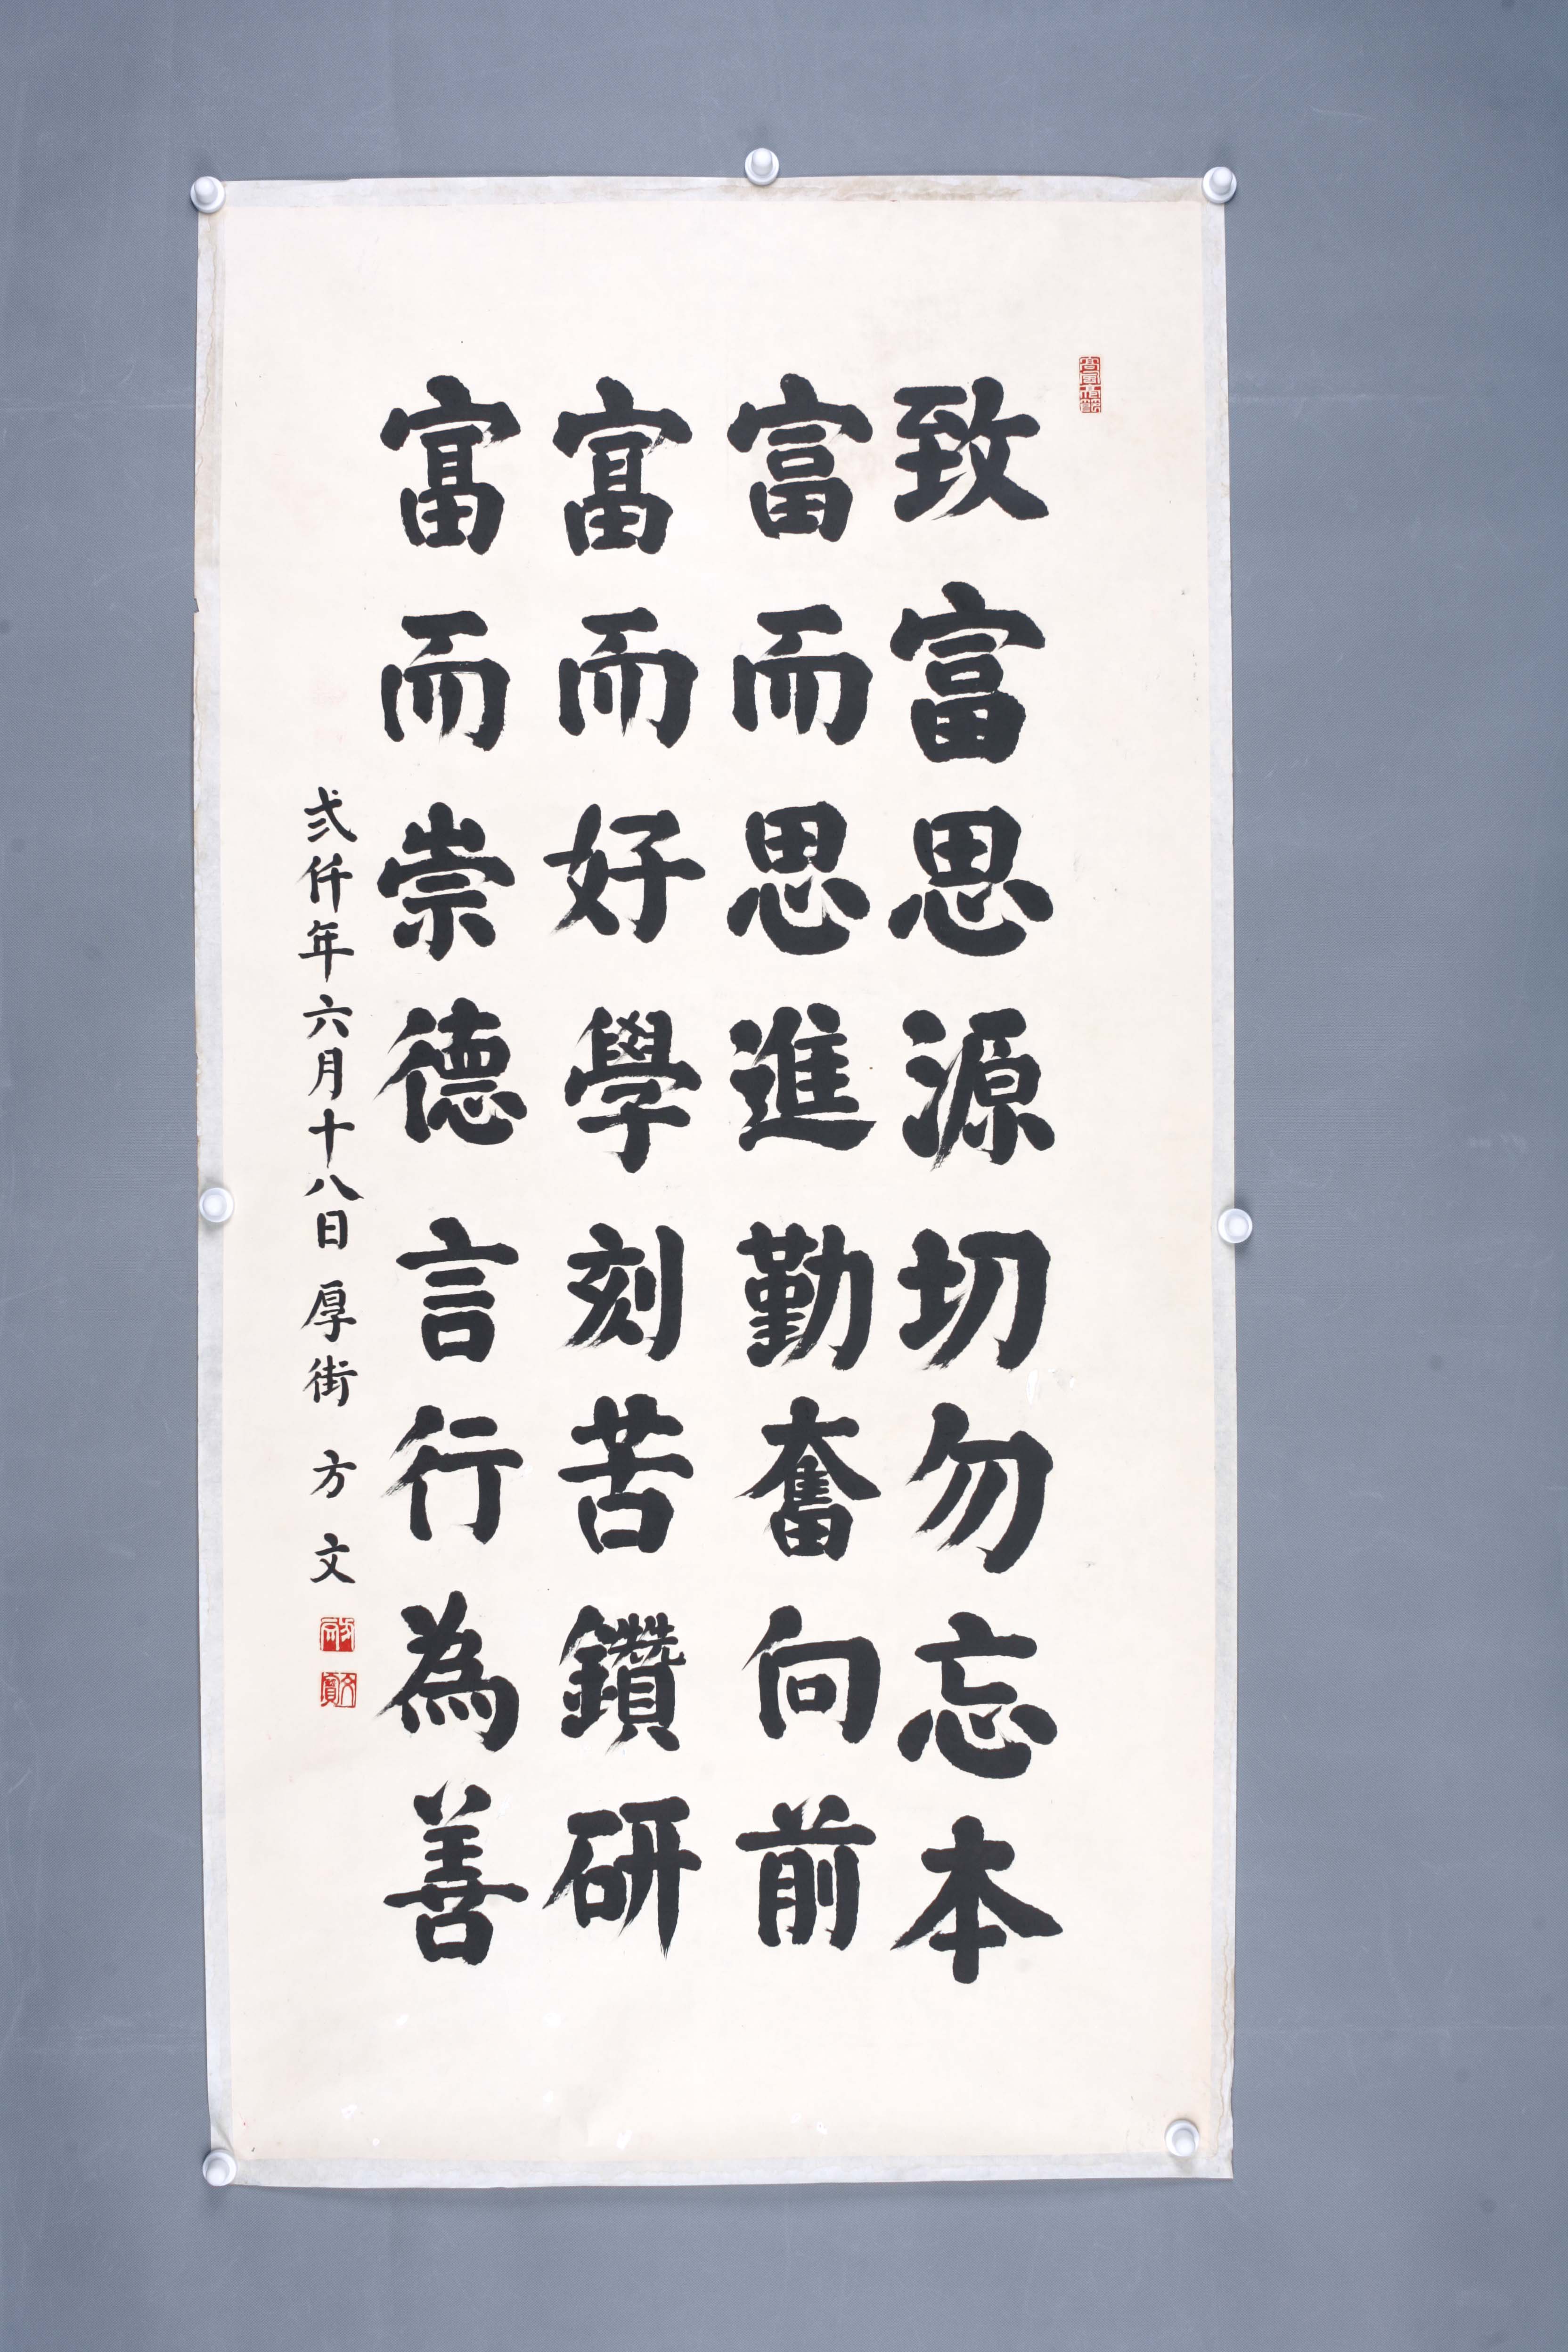 致富思源切勿忘本
富而思進勤奮向前
富而好學刻苦鑽研
富而崇德言行為善
弍仟年六月十八日厚街 方文